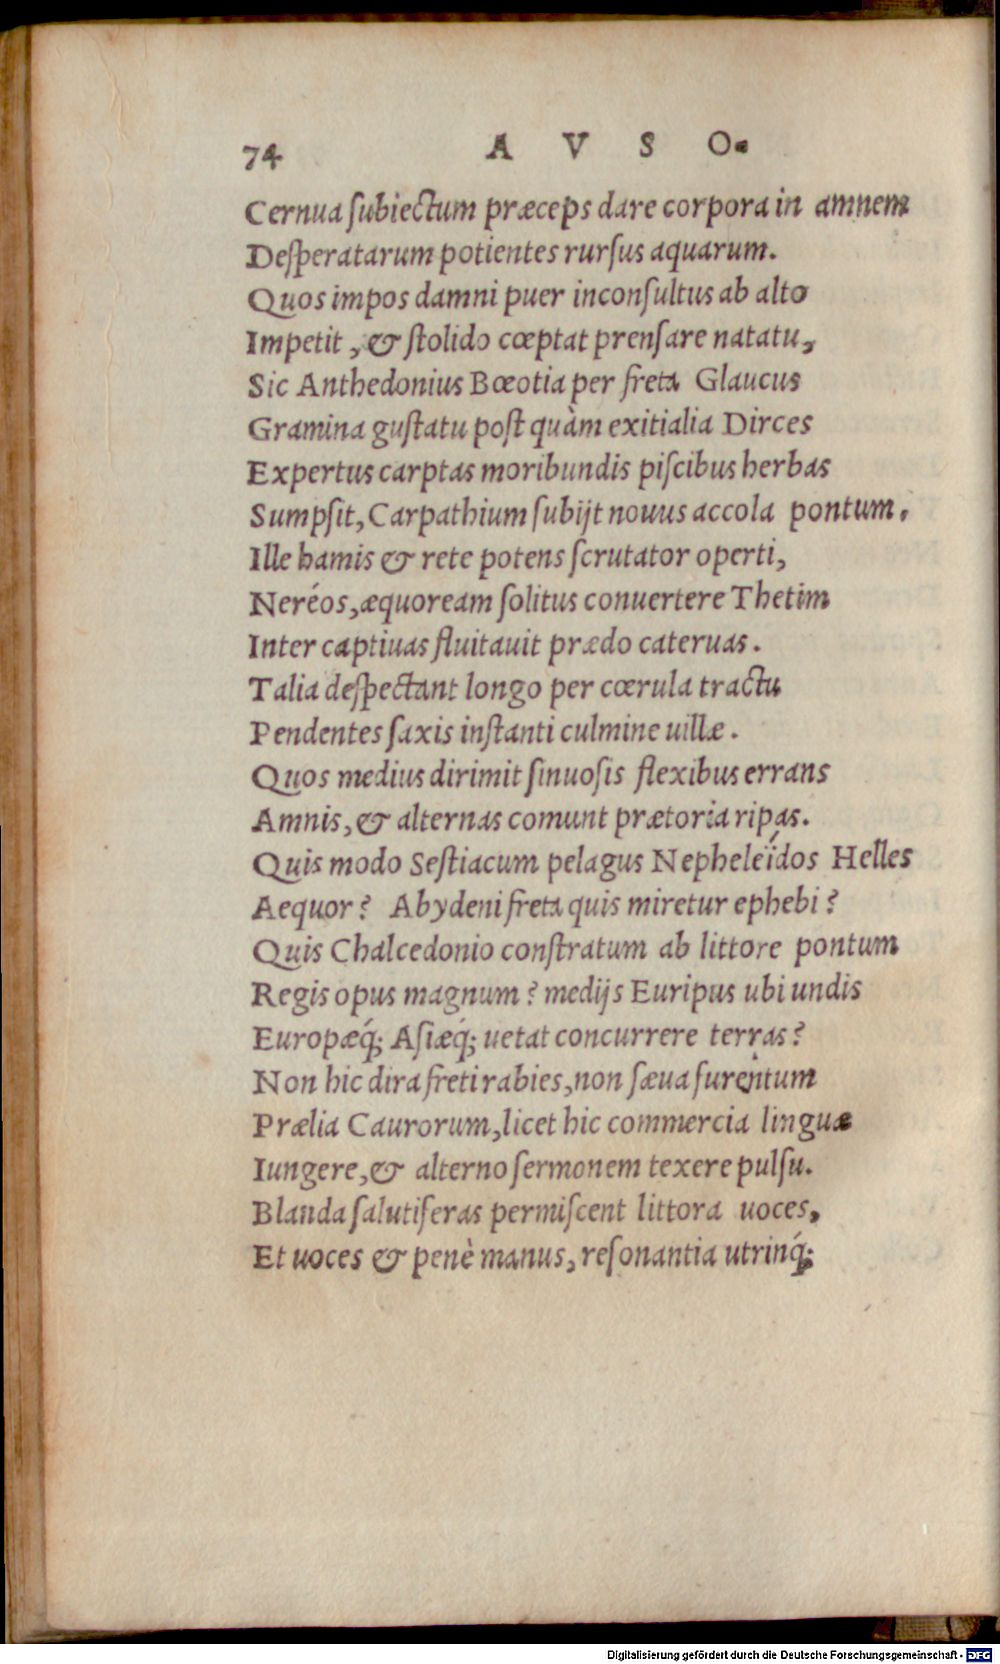 74 A V S O.
Cernua ſubiectum præceps dare corpora in amnem
Deſperatarum potientes rurſus aquarum.
Quos impos damni puer inconſultus ab alto
Impetit, & ſtolido cœptat prenſare natatu,
Sic Anthedonius Bœotia per freta Glaucus
Gramina guſtatu poſt quàm exitialia Dirces
Expertus carptas moribundis piſcibus herbas
Sumpſit, Carpathium ſubijt nouus accola pontum.
Ille hamis & rete potens ſcrutator operti,
Neréos, æquoream ſolitus conuertere Thetim
Inter captiuas fluitauit prædo cateruas.
Talia deſpectant longo per cœrula tractu
Pendentes ſaxis inſtanti culmine uillæ.
Quos medius dirimit ſinuoſis flexibus errans
Amnis, & alternas comunt prætoria ripas.
Quis modo Seſtiacum pelagus Nepheleḯdos Helles
Aequor? Abydeni freta quis miretur ephebi?
Quis Chalcedonio conſtratum ab littore pontum
Regis opus magnum? medijs Euripus ubi undis
Europæq́; Aſiæq́; uetat concurrere terras?
Non hic dira freti rabies, non ſæua furentum
Prælia Caurorum, licet hic commercia linguæ
Iungere, & alterno ſermonem texere pulſu.
Blanda ſalutiferas permiſcent littora uoces,
Et uoces & penè manus, reſonantia utrinq́;
Digitalisierung gefördert durch die Deutsche Forschungsgemeinschaft - DFG